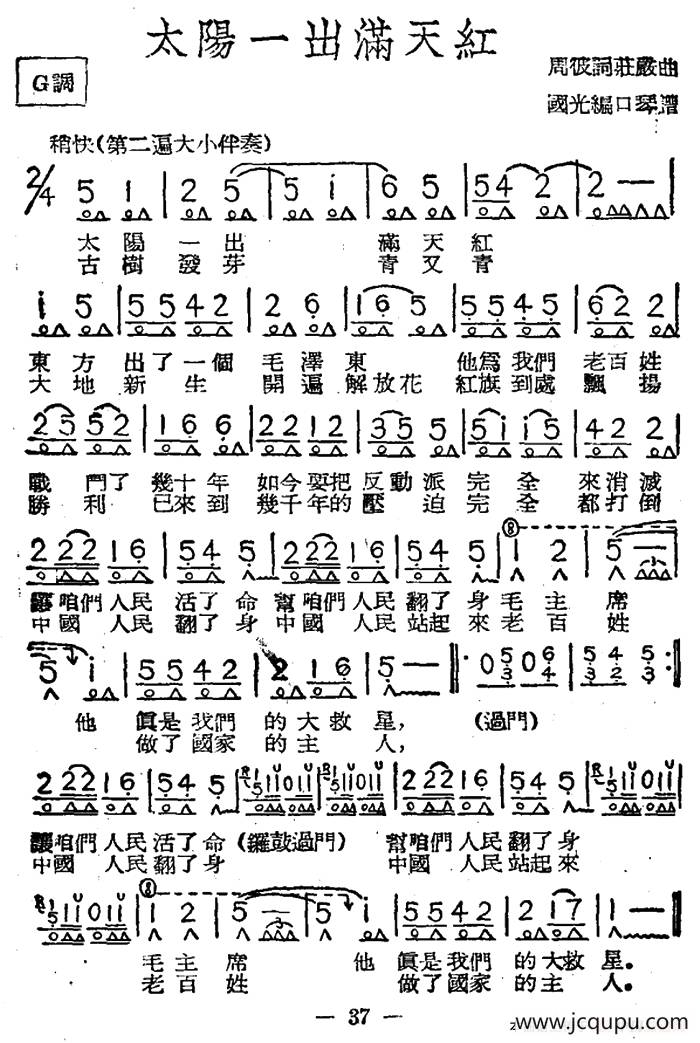 太陽一出滿天紅
G調
周彼詞莊嚴曲
國光編口琴譜
稍快(第二遍大小伴奏)
2/4 5 1 | 2 5 | 5 i | 6 5 | 54 2 | 2 — |
太 陽 一 出 滿 天 紅
古 樹 發 芽 青 又 青
i 5 | 55 42 | 2 6 | 16 5 | 55 45 | 62 2 |
東 方 出 了 一 個 毛 澤 東 他 為 我 們 老 百 姓
大 地 新 生 開 遍 解 放 花 紅 旗 到 處 飄 揚
25 52 | 16 6 | 22 12 | 35 5 | 5i i5 | 42 2 |
戰 鬥 了 幾 十 年 如 今 要 把 反 動 派 完 全 來 消 滅
勝 利 已 來 到 幾 千 年 的 壓 迫 完 全 都 打 倒
222 16 | 54 5 | 222 16 | 54 5 | 8 1 2 | 5 — |
咱 們 人 民 活 了 命 幫 咱 們 人 民 翻 了 身 毛 主 席
中 國 人 民 翻 了 身 中 國 人 民 站 起 來 老 百 姓
5 i | 55 42 | 2 16 | 5 — | 0 53 64 | 53 42 53 :|
他 真 是 我 們 的 大 救 星, (過門)
做 了 國 家 的 主 人,
222 16 | 54 5 | 222 16 | 54 5
讓 咱 們 人 民 活 了 命 (鑼鼓過門) 幫 咱 們 人 民 翻 了 身
中 國 人 民 翻 了 身 中 國 人 民 站 起 來
8 1 2 | 5 — | 5 i | 55 42 | 2 17 | 1 — |
毛 主 席 他 真 是 我 們 的 大 救 星。
老 百 姓 做 了 國 家 的 主 人。
— 37 —
www.jcqupu.com